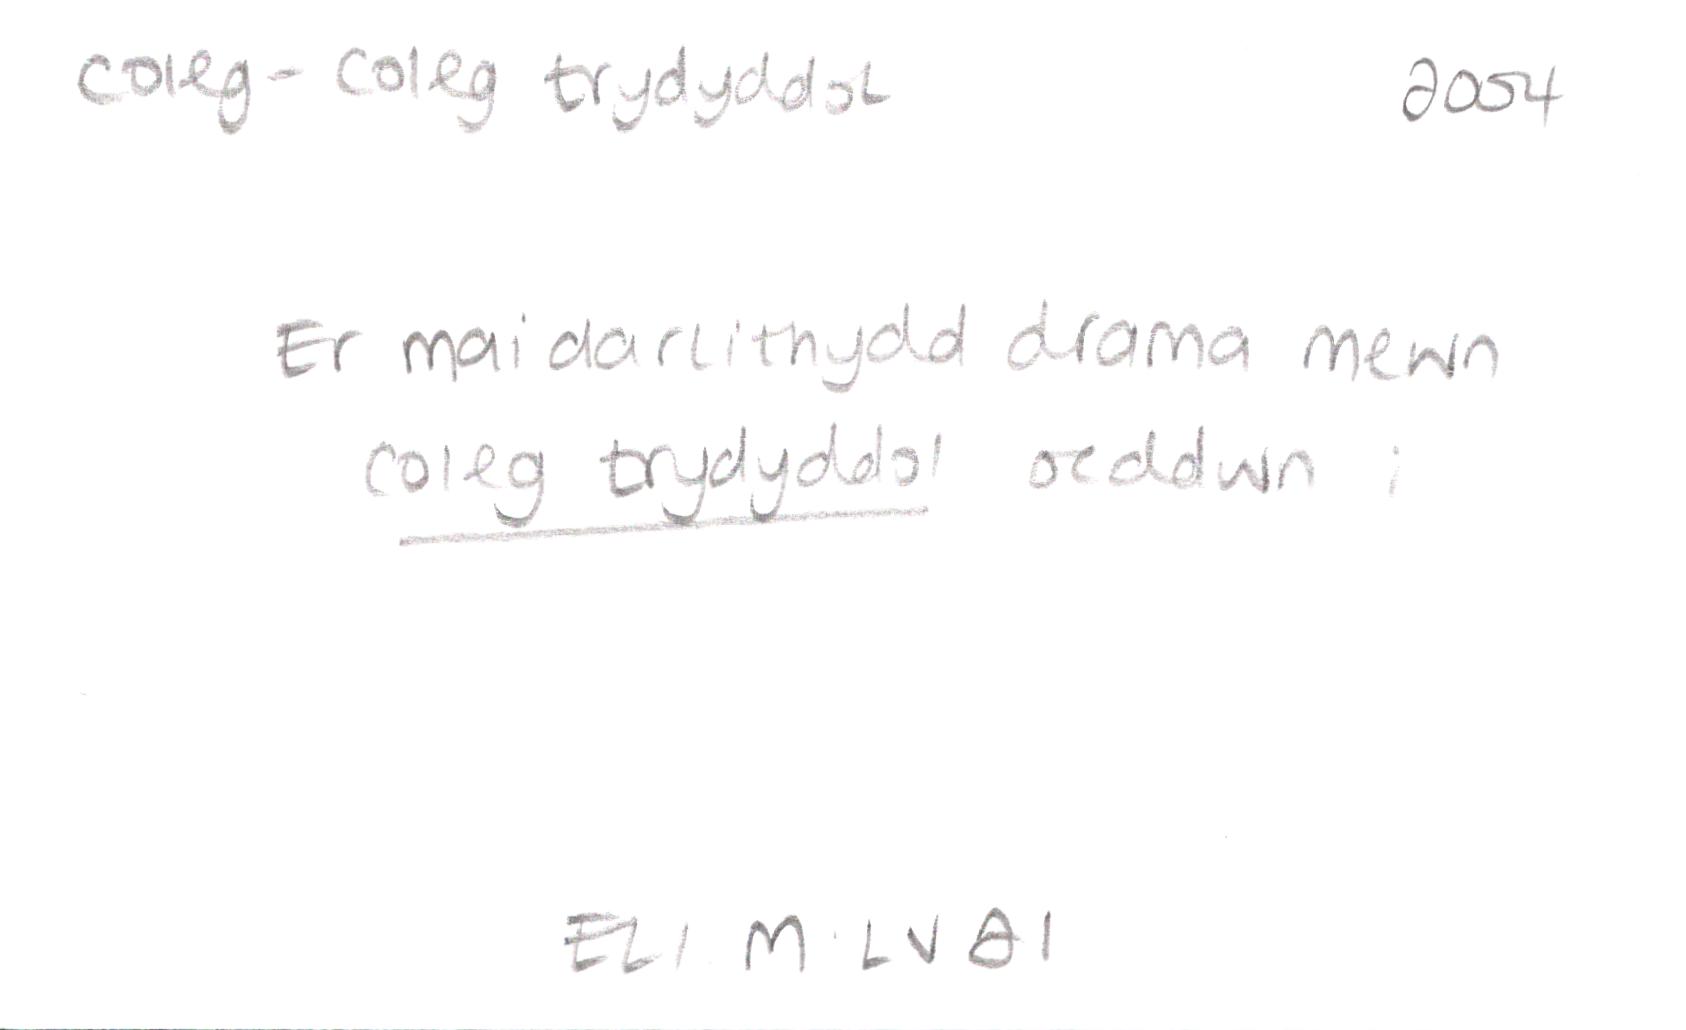 Coleg - Coleg trydyddol 2054
Er mai darlithydd drama mewn
coleg trydyddol oeddwn i
ELI M. LVAI